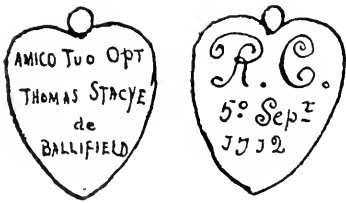 AMICO TUO OPT
THOMAS STACYE
de
BALLIFIELD
R. C.
5º Sepᵗ
1712